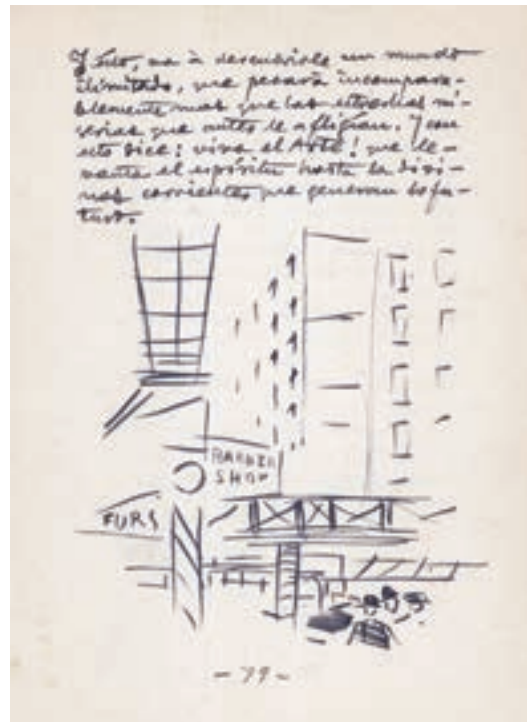 Y esto, va à descubrirle un mundo
ilimitado, que pesará incompara-
blemente mas que las estrechas mi-
serias que antes le afligían. Y con
esto dice: viva el Arte! que le-
vanta el espíritu hasta la divi-
nas corrientes que generan lo fu-
turo.
BARBER
SHOP
FURS
- 79 -